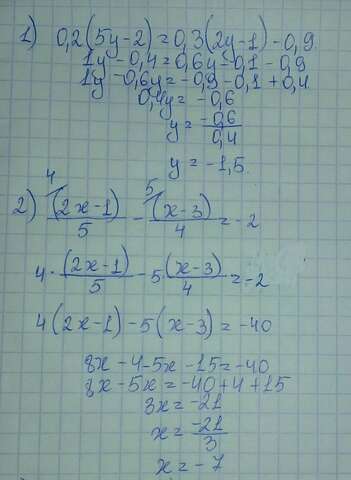 1) 0,2(5y-2)=0,3(2y-1)-0,9
1y-0,4=0,6y-0,1-0,9
1y-0,6y=-0,9-0,1+0,4
0,4y=-0,6
y=-0,6/0,4
y=-1,5.
2) 4 (2x-1)/5 - 5 (x-3)/4 = -2
4·(2x-1)/5 - 5(x-3)/4 = -2
4(2x-1)-5(x-3)=-40
8x-4-5x-15=-40
8x-5x=-40+4+15
3x=-21
x=-21/3
x=-7